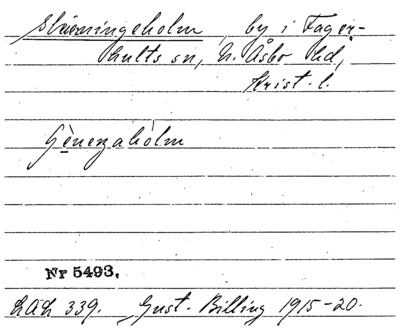 by i Fager-
hults sn, N. Åsbo hd,
Krist. l.
Nr 5493.
LAL 339. Gust. Billing 1915-20.